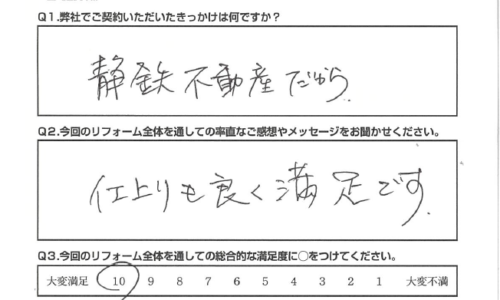 Q1.弊社でご契約いただいたきっかけは何ですか？
静鉄不動産だから
Q2.今回のリフォーム全体を通しての率直なご感想やメッセージをお聞かせください。
仕上りも良く満足です.
Q3.今回のリフォーム全体を通しての総合的な満足度に○をつけてください。
大変満足 10 9 8 7 6 5 4 3 2 1 大変不満